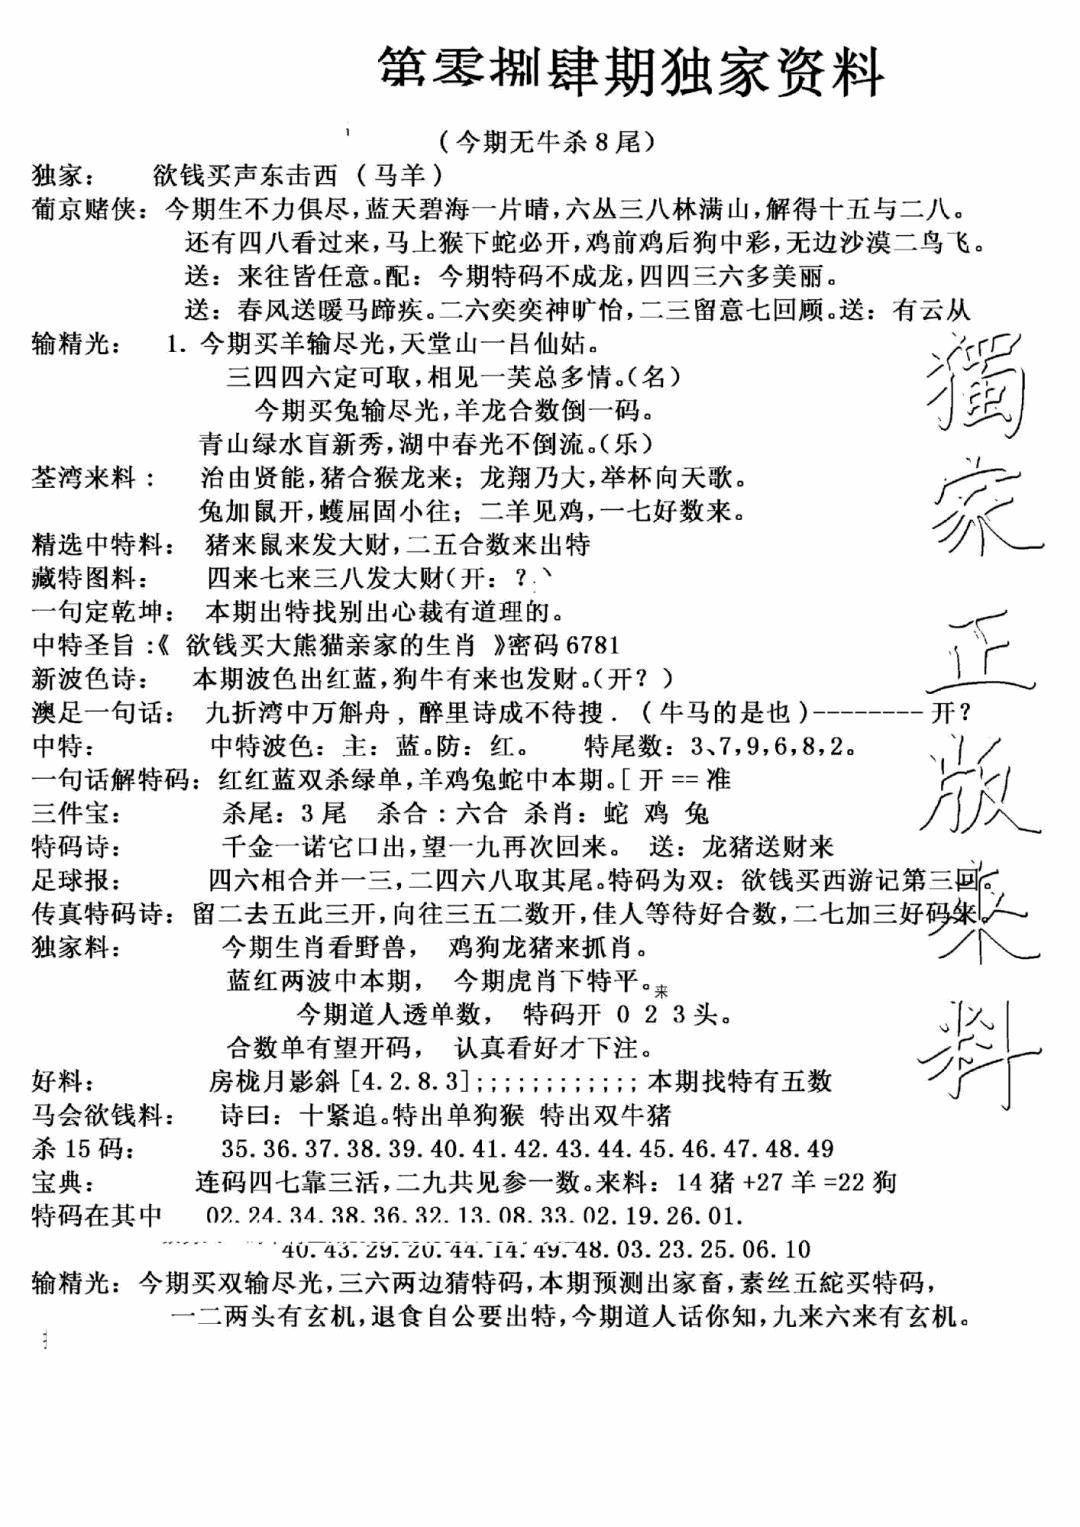 第零捌肆期独家资料
(今期无牛杀8尾)
独家: 欲钱买声东击西 (马羊)
葡京赌侠: 今期生不力俱尽,蓝天碧海一片晴,六丛三八林满山,解得十五与二八。
还有四八看过来,马上猴下蛇必开,鸡前鸡后狗中彩,无边沙漠二鸟飞。
送: 来往皆任意。配: 今期特码不成龙,四四三六多美丽。
送: 春风送暖马蹄疾。二六奕奕神旷怡,二三留意七回顾。送: 有云从
输精光: 1. 今期买羊输尽光,天堂山一吕仙姑。
三四四六定可取,相见一芙总多情。(名)
今期买兔输尽光,羊龙合数倒一码。
青山绿水盲新秀,湖中春光不倒流。(乐)
荃湾来料: 治由贤能,猪合猴龙来; 龙翔乃大,举杯向天歌。
兔加鼠开,蠖屈固小往; 二羊见鸡,一七好数来。
精选中特料: 猪来鼠来发大财,二五合数来出特
藏特图料: 四来七来三八发大财(开: ?
一句定乾坤: 本期出特找别出心裁有道理的。
中特圣旨:《 欲钱买大熊猫亲家的生肖 》密码6781
新波色诗: 本期波色出红蓝,狗牛有来也发财。(开? )
澳足一句话: 九折湾中万斛舟 , 醉里诗成不待搜 . (牛马的是也)--------开?
中特: 中特波色: 主: 蓝。防: 红。 特尾数: 3、7,9,6,8,2。
一句话解特码: 红红蓝双杀绿单,羊鸡兔蛇中本期。[ 开 == 准
三件宝: 杀尾: 3 尾 杀合 : 六合 杀肖: 蛇 鸡 兔
特码诗: 千金一诺它口出,望一九再次回来。 送: 龙猪送财来
足球报: 四六相合并一三,二四六八取其尾。特码为双: 欲钱买西游记第三回。
传真特码诗: 留二去五此三开,向往三五二数开,佳人等待好合数,二七加三好码来。
独家料: 今期生肖看野兽, 鸡狗龙猪来抓肖。
蓝红两波中本期, 今期虎肖下特平。来
今期道人透单数, 特码开 0 2 3头。
合数单有望开码, 认真看好才下注。
好料: 房栊月影斜[4.2.8.3];;;;;;;;;;;;本期找特有五数
马会欲钱料: 诗曰: 十紧追。特出单狗猴 特出双牛猪
杀15码: 35.36.37.38.39.40.41.42.43.44.45.46.47.48.49
宝典: 连码四七靠三活,二九共见参一数。来料: 14猪+27羊=22狗
特码在其中 02.24.34.38.36.32.13.08.33.02.19.26.01.
40.43.29.20.44.14.49.48.03.23.25.06.10
输精光: 今期买双输尽光,三六两边猜特码,本期预测出家畜,素丝五紽买特码,
一二两头有玄机,退食自公要出特,今期道人话你知,九来六来有玄机。
獨家正版来料